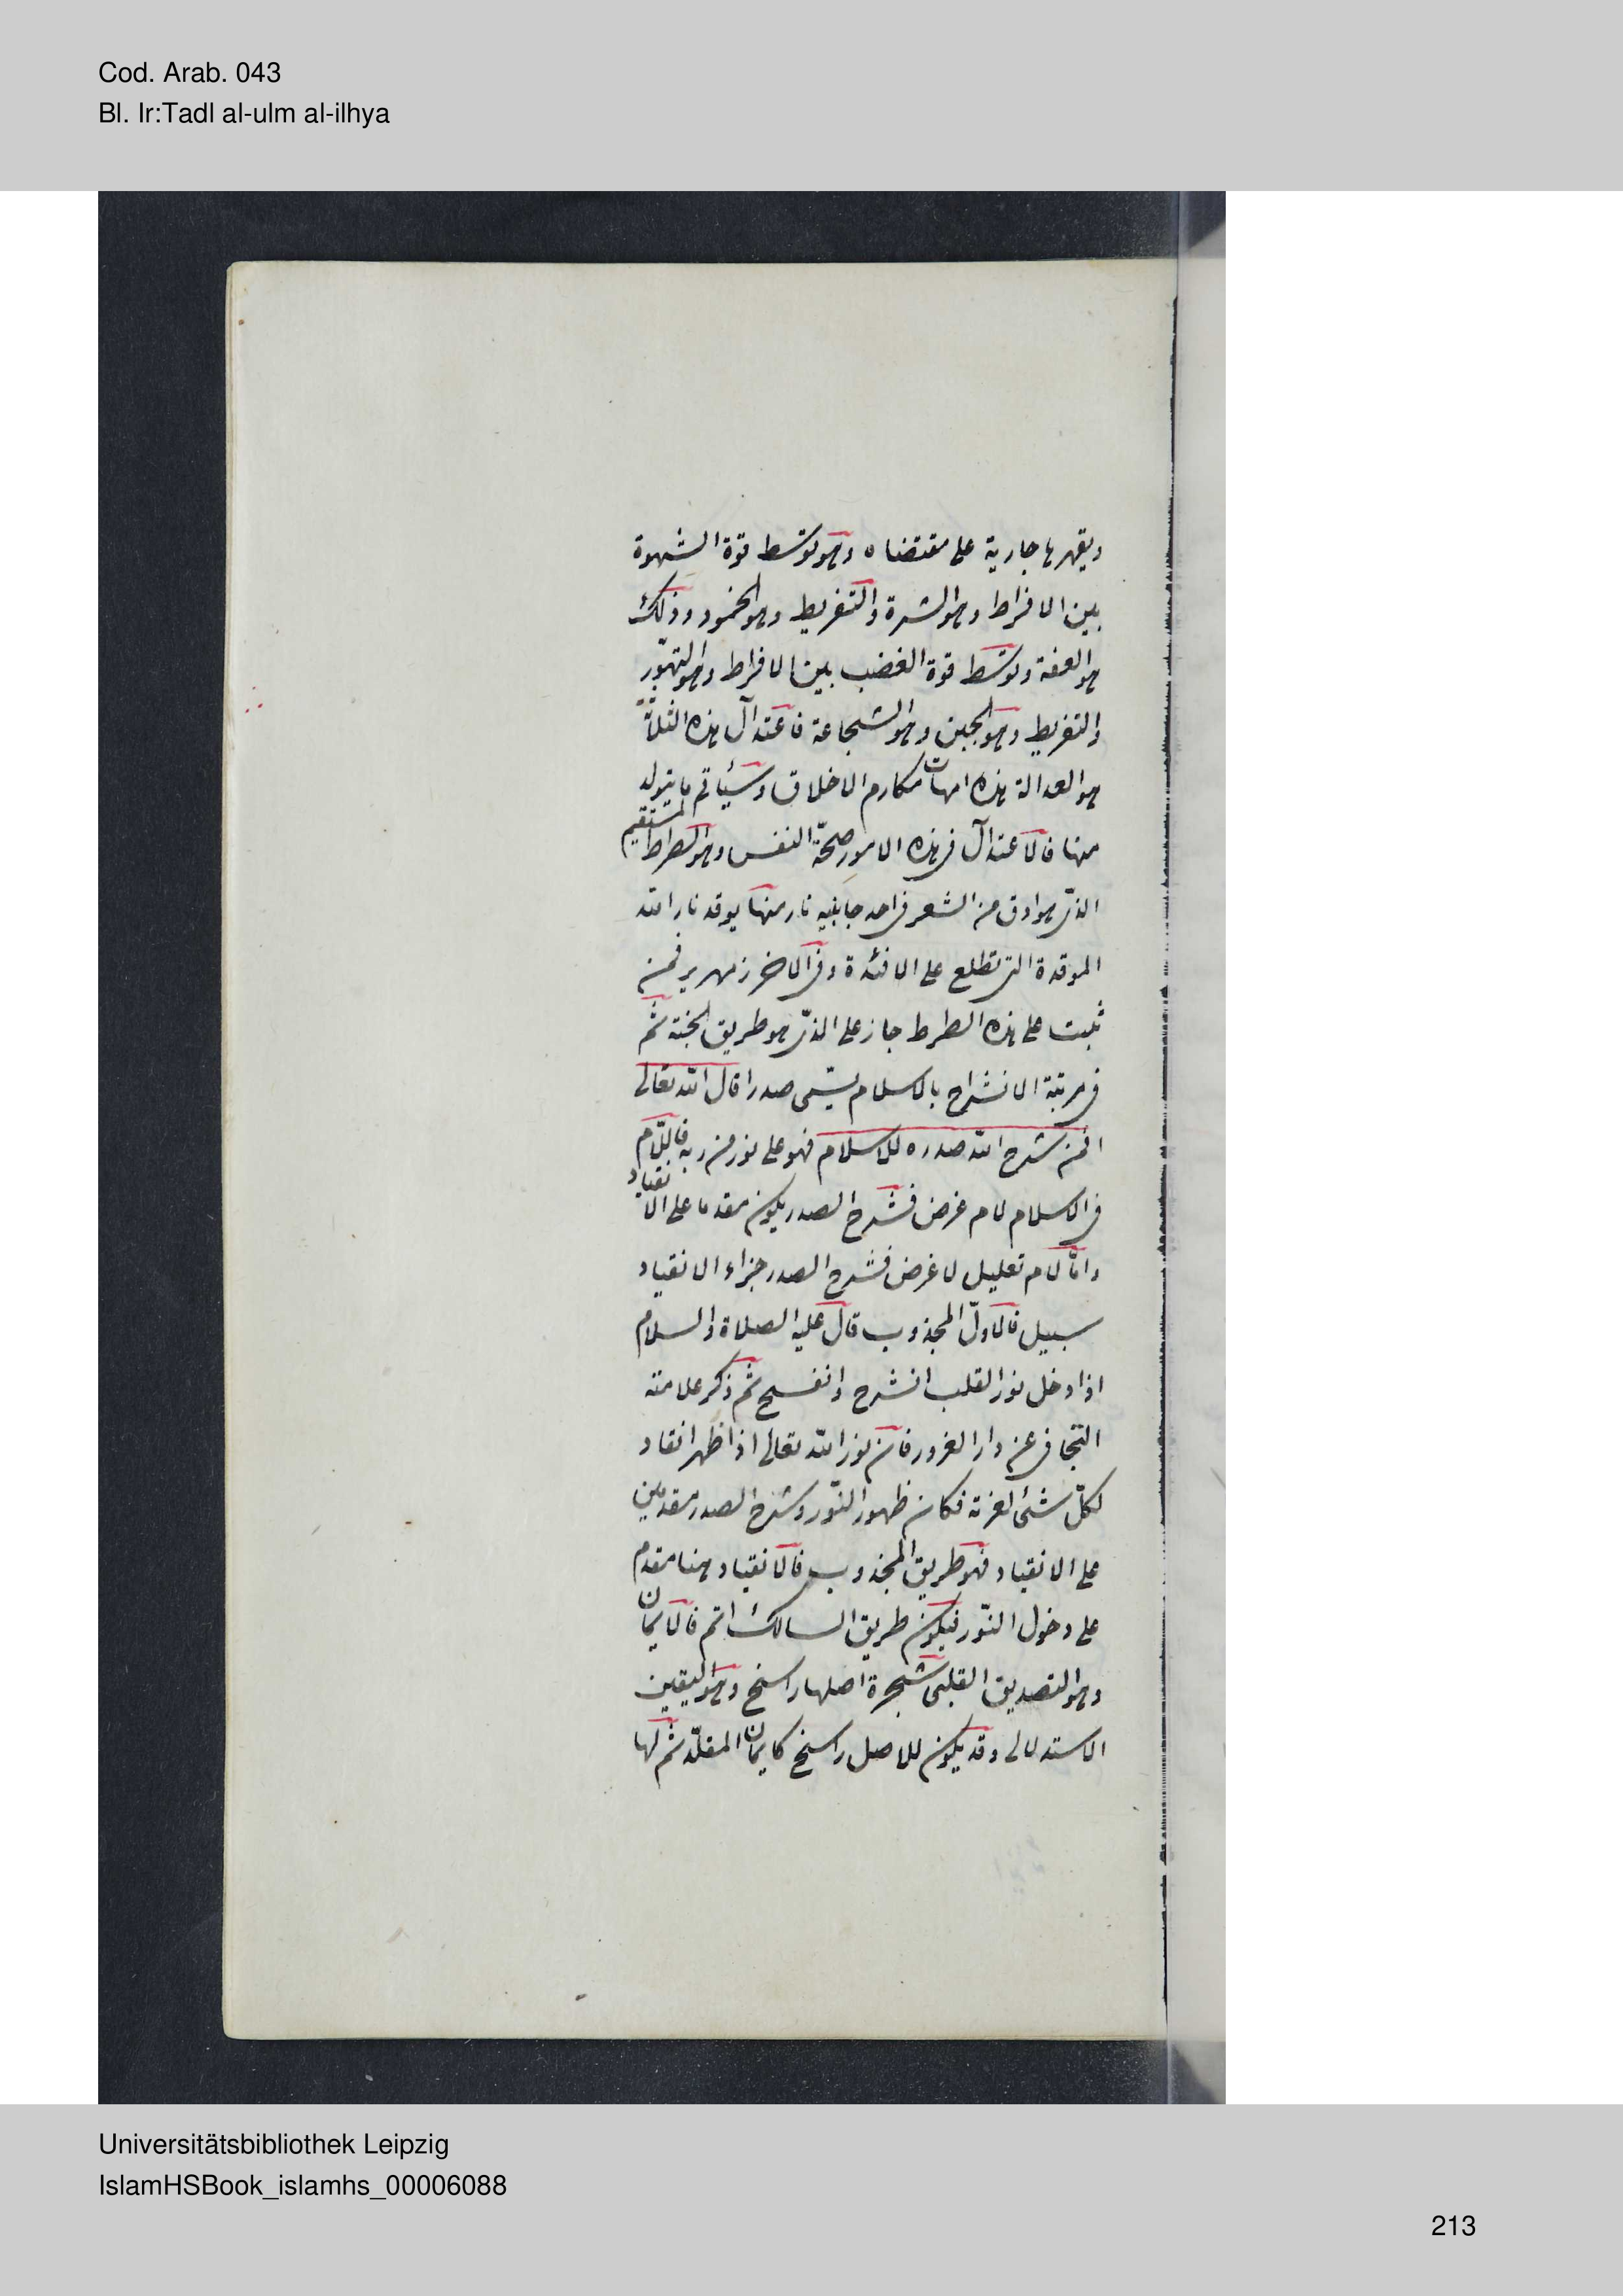 Cod. Arab. 043
Bl. Ir:Tadl al-ulm al-ilhya
ويقهرها جارية على مقتضاه وهو توسّط قوة الشهوة
بين الافراط وهو الشره والتفريط وهو الخمود وذلك
هو العفة وتوسّط قوة الغضب بين الافراط وهو التهوّر
والتفريط وهو الجبن وهو الشجاعة فاعتدال هذه الثلثة
هو العدالة هذه امهات مكارم الاخلاق وسيأتي ما يتولد
منها فالاعتدال في هذه الامور صحّة النفس وهو الصراط المستقيم
الذى هو ادق من الشعر في احد جانبيه نار منها يوقد نار الله
الموقدة التي تطلع على الافئدة وفي الاخر زمهرير فمن
ثبت على هذه الصراط جاز على الذى هو طريق الجنة ثم
في مرتبة الانشراح بالاسلام يسّمى صدرا قال الله تعالى
افمن شرح الله صدره للاسلام فهو على نور من ربه فاللّام
في الاسلام لام غرض فشرح الصدر يكون مقدما على الانقياد
وامّا لام تعليل لا غرض فشرح الصدر جزاء الانقياد
سبيل فالاوّل المجذوب قال عليه الصلاة والسلام
اذا دخل نور القلب انشرح وانفسح ثم ذكر علامته
التجافي عن دار الغرور فان نور الله تعالى اذا ظهر انقاد
لكلّ شئ لعزته فكان ظهور النّور وشرح الصدر مقدمين
على الانقياد فهو طريق المجذوب فالانقياد هنا مقدم
على دخول النّور فيكون طريق السالك اتم فالايمان
وهو التصديق القلبى شجرة اصلها راسخ وهو اليقين
الاستدلالى وقد يكون للاصل راسخ كايمان المقلّد ثم لها
Universitätsbibliothek Leipzig
IslamHSBook_islamhs_00006088
213